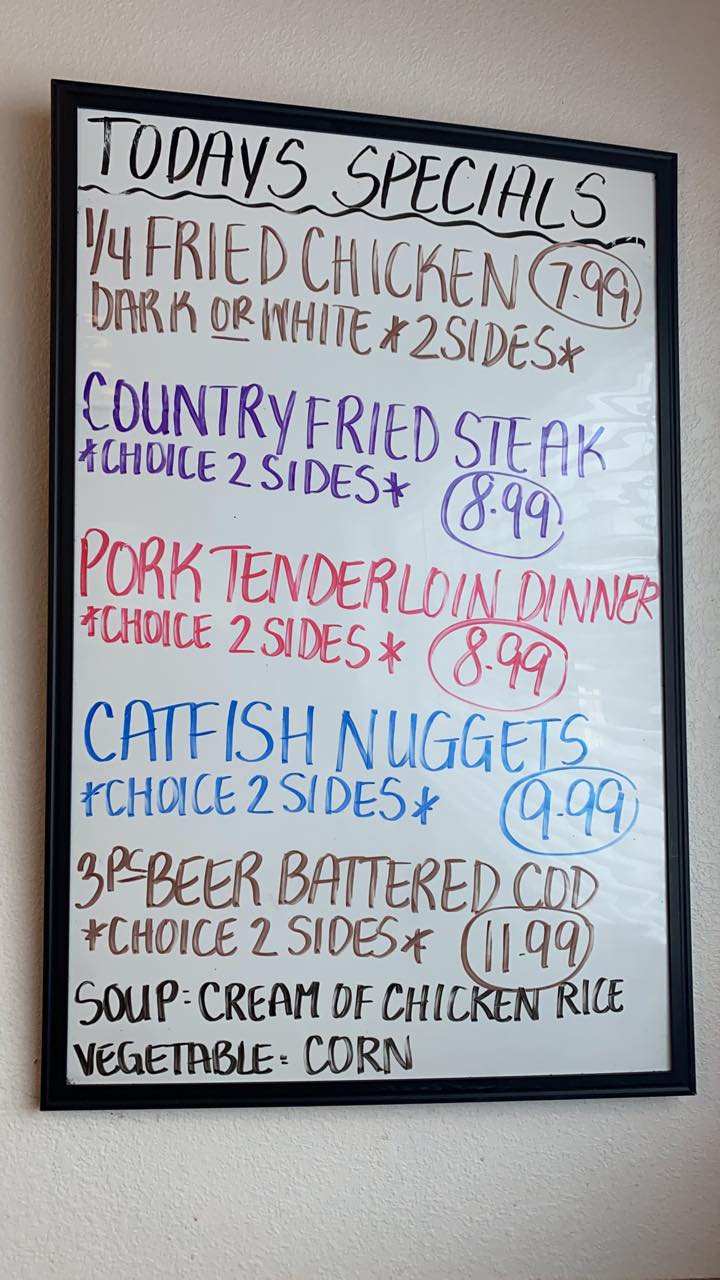 TODAYS SPECIALS
1/4 FRIED CHICKEN 7.99
DARK OR WHITE *2 SIDES*
COUNTRY FRIED STEAK
*CHOICE 2 SIDES* 8.99
PORK TENDERLOIN DINNER
*CHOICE 2 SIDES* 8.99
CATFISH NUGGETS
*CHOICE 2 SIDES* 9.99
3PC BEER BATTERED COD
*CHOICE 2 SIDES* 11.99
SOUP: CREAM OF CHICKEN RICE
VEGETABLE: CORN